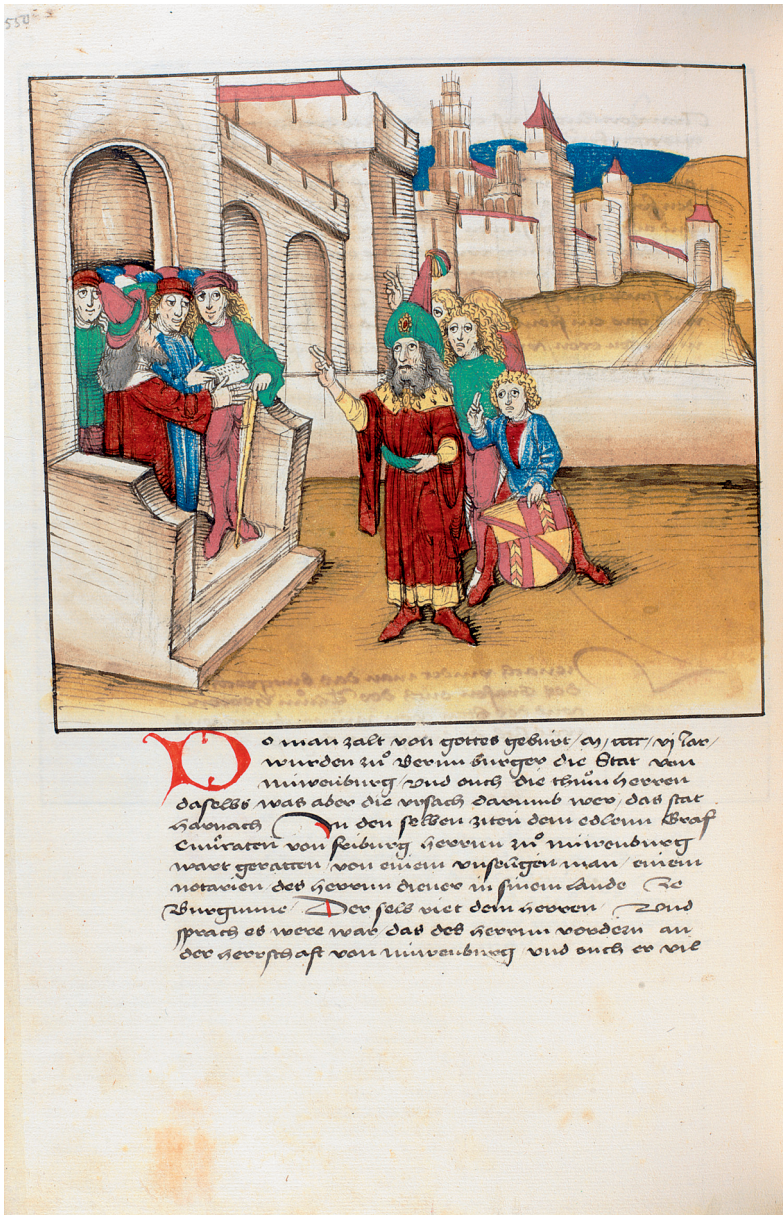 550
Do man zalt von gottes gebürt / m / cccc / vj Jar /
wurden zů Bernn burger die Stat von
nüwenburg / vnd ouch die thůmherren
daselbs was aber die vrsach darumb wer / das stat
harnach In den selben ziten dem edlenn Graf
Cůnraten von friburg herrnn zů nüwenburg
wart geratten / von einem vnseligen man / einem
notarien des herrnn diener in sinem lande Ze
Burgunne / Der selb riet dem herren / Vnd
sprach es were war das des herrnn vordern an
der herrschaft von nüwenburg / vnd ouch er vil